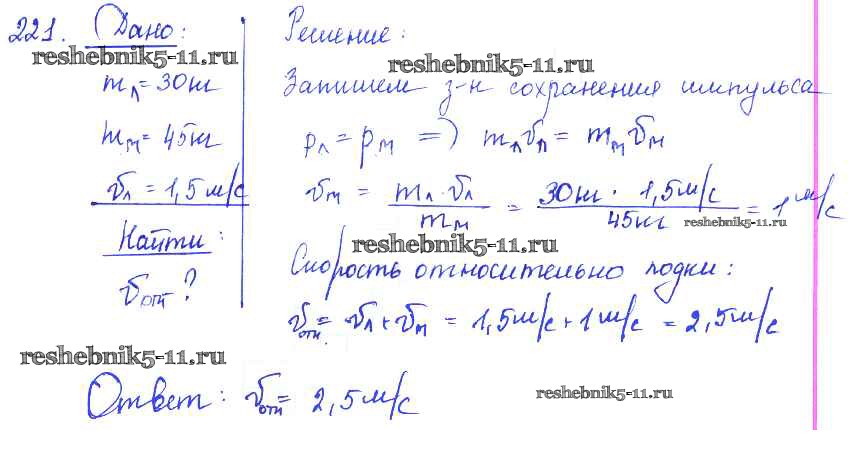 221. Дано:
reshebnik5-11.ru
mл = 30 кг
mм = 45 кг
vл = 1,5 м/с
Найти:
vотн ?
Решение:
reshebnik5-11.ru
Запишем з-н сохранения импульса
pл = pм => mлvл = mмvм
vм = mл · vл / mм = 30 кг · 1,5 м/с / 45 кг = 1 м/с
reshebnik5-11.ru
reshebnik5-11.ru
Скорость относительно лодки:
vотн. = vл + vм = 1,5 м/с + 1 м/с = 2,5 м/с
reshebnik5-11.ru
Ответ: vотн = 2,5 м/с
reshebnik5-11.ru